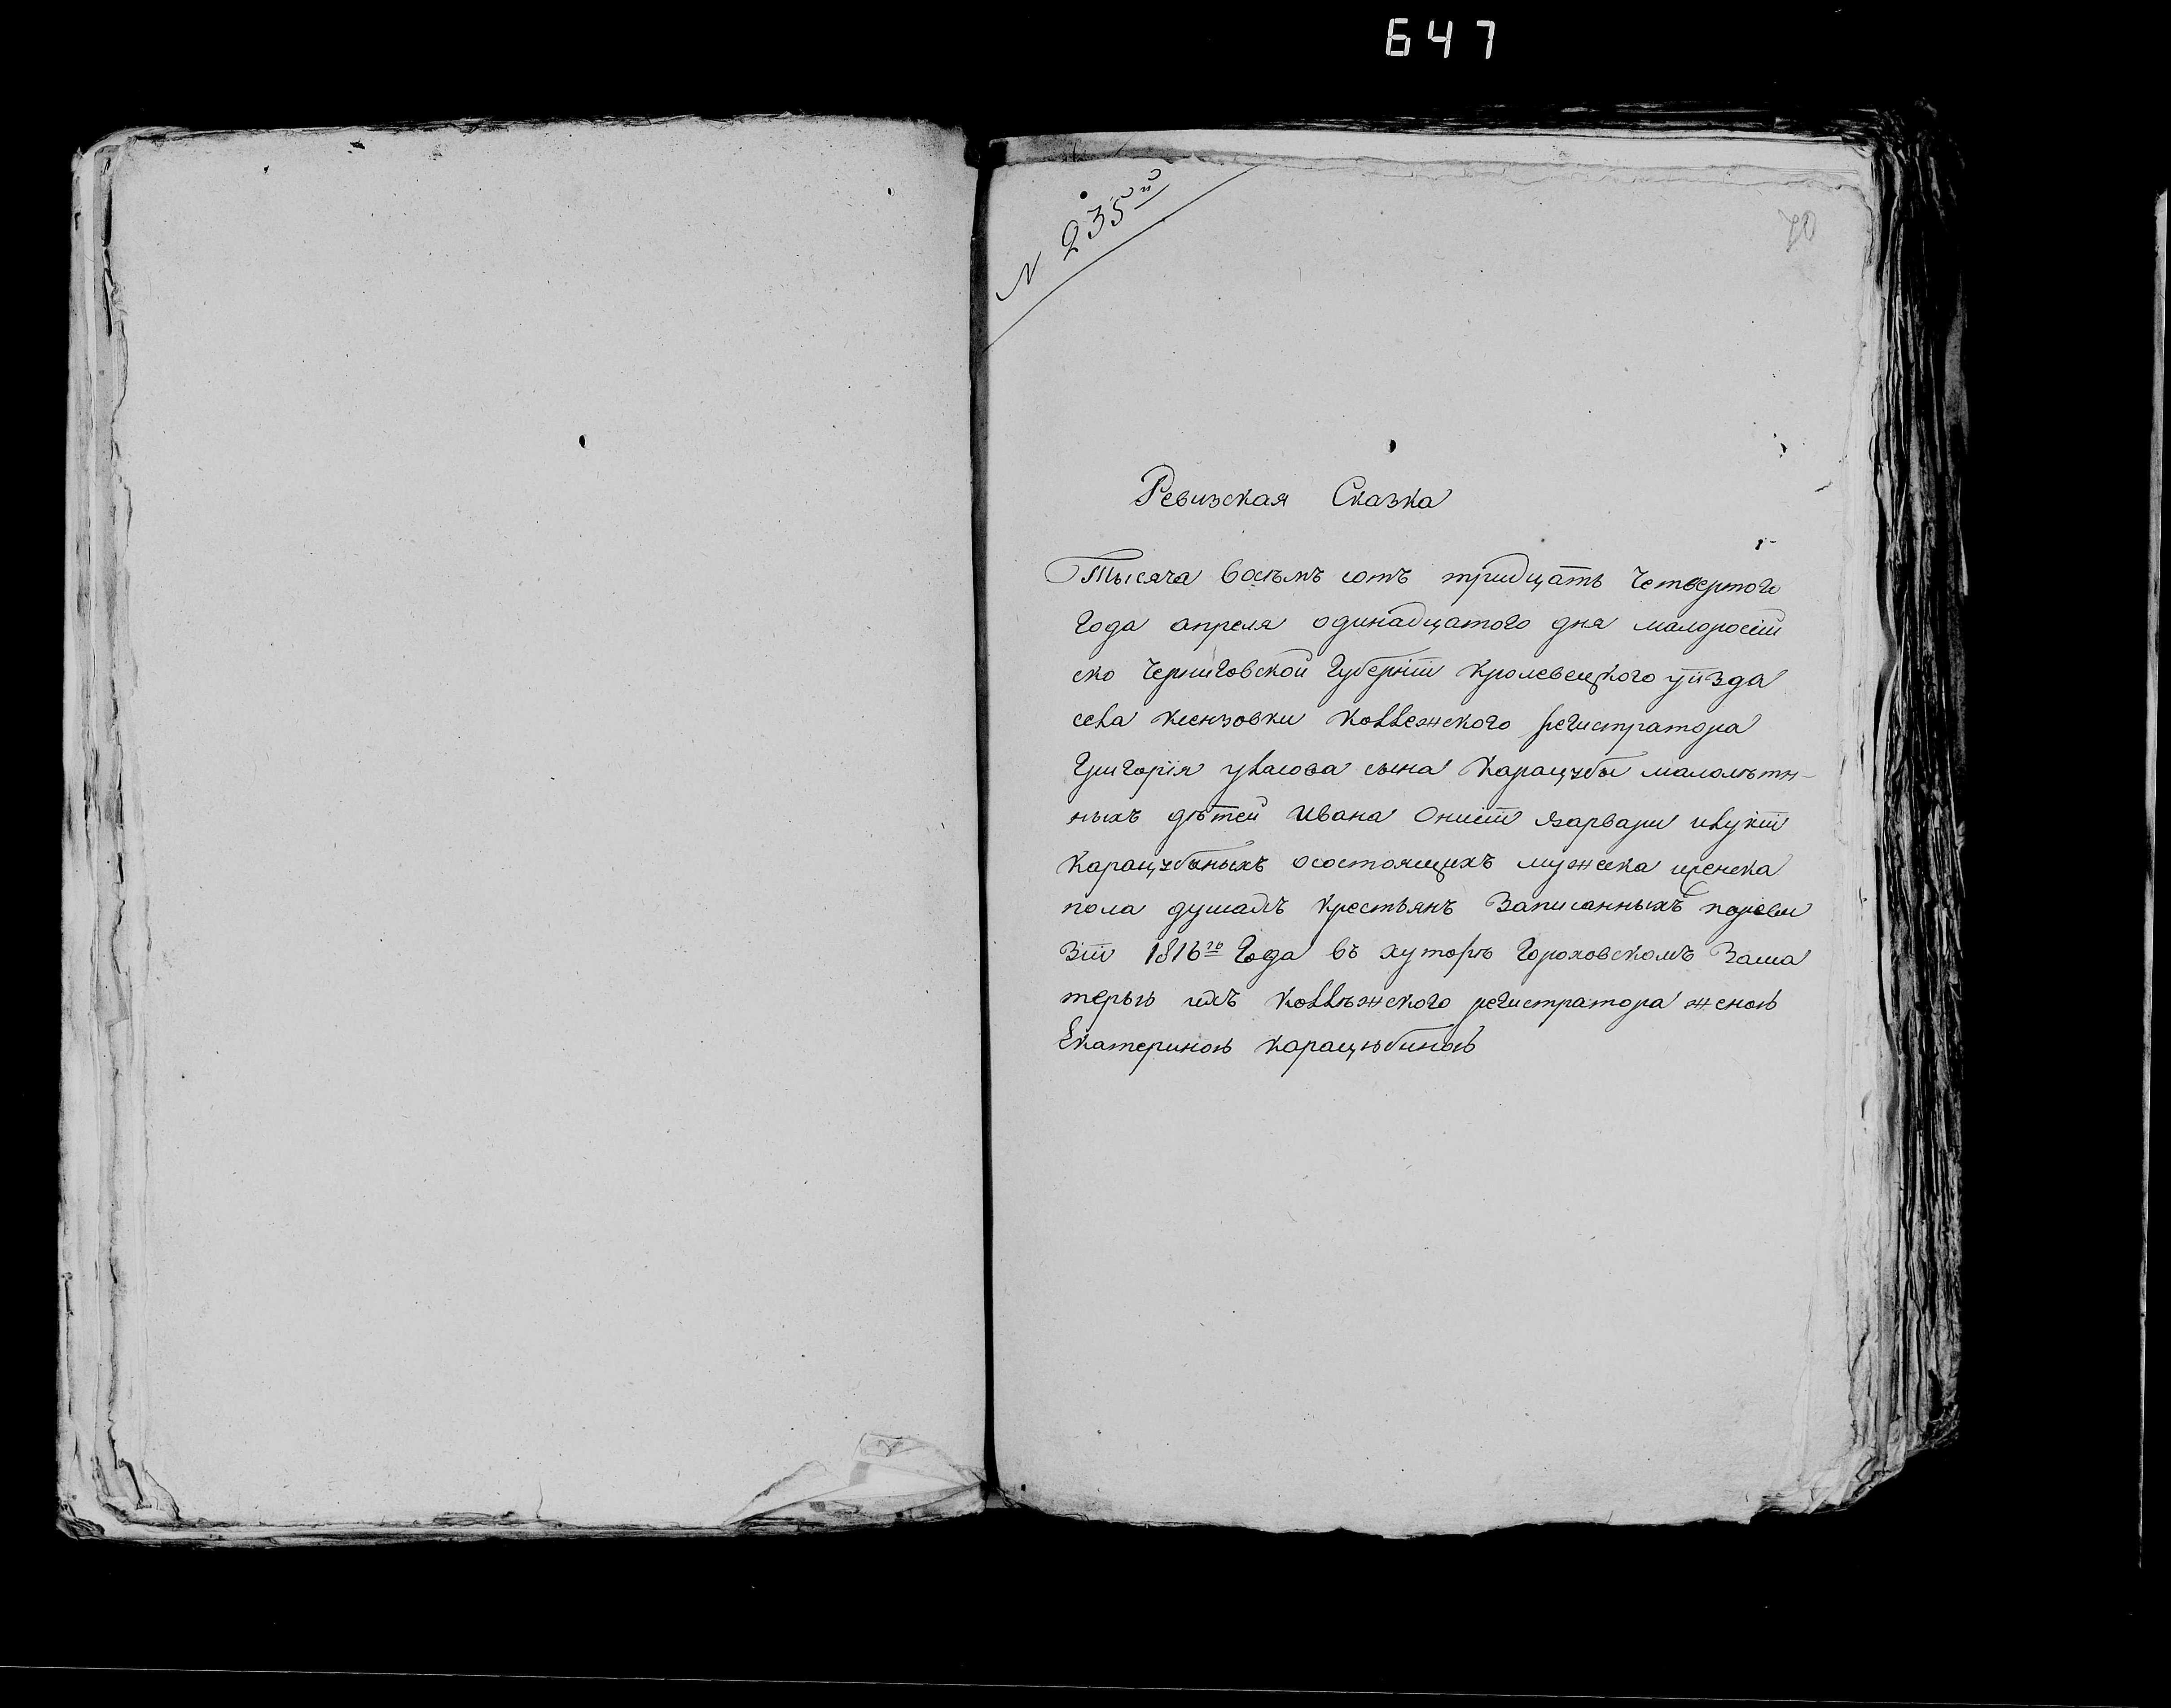 647
N 235й
70
Ревизская Сказка
Тысяча восѣмъ сотъ тридцать четвертого
Года апреля одинадцатого дня малоросій
ско Черниговской Губерніи Кролевецкого уѣзда
села Ксензовки Коллежского регистратора
Григорія Уласова сына Карацубы малолѣтн-
ныхъ дѣтей Ивана Онисіи Варвары и
Карацубиныхъ осостоящихъ мужеска иженска
пола душахъ крестьянъ Записанныхъ пореви
зіи 1816го Года въ хуторѣ Гороховскомъ Зама
терью ихъ Коллѣжского регистратора женою
Екатериною Карацюбиною